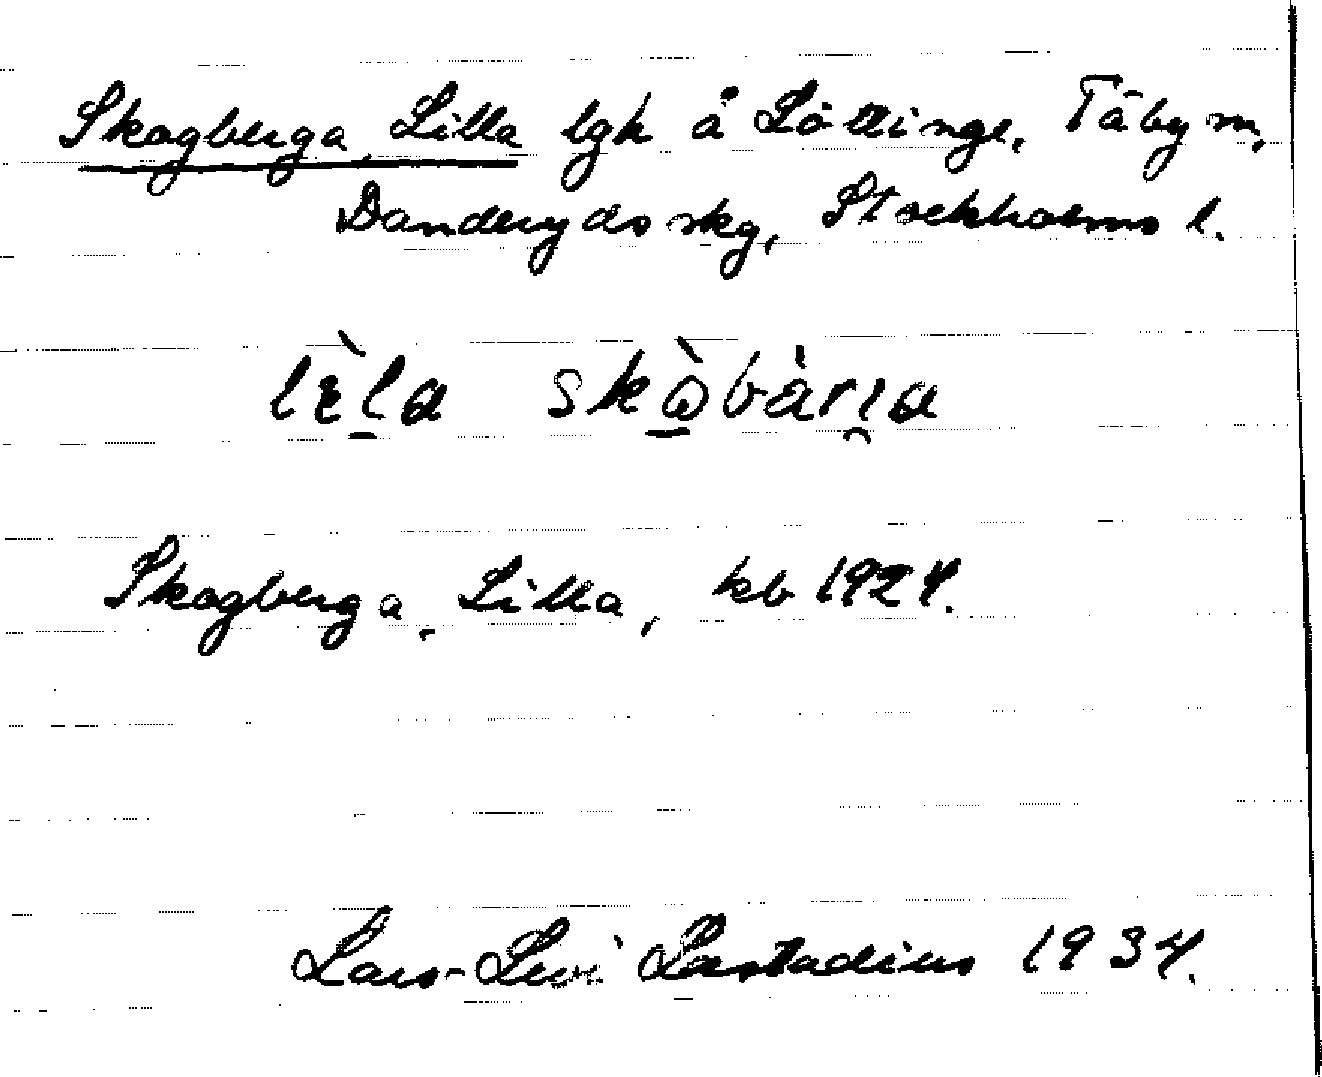 Skogberga, Lilla lgh å Löttinge, Täby sn,
Danderyds skg, Stockholms l.
lèla skòbàrɪa
Skogberga, Lilla, kb 1924.
Lars-Levi Læstadius 1934.